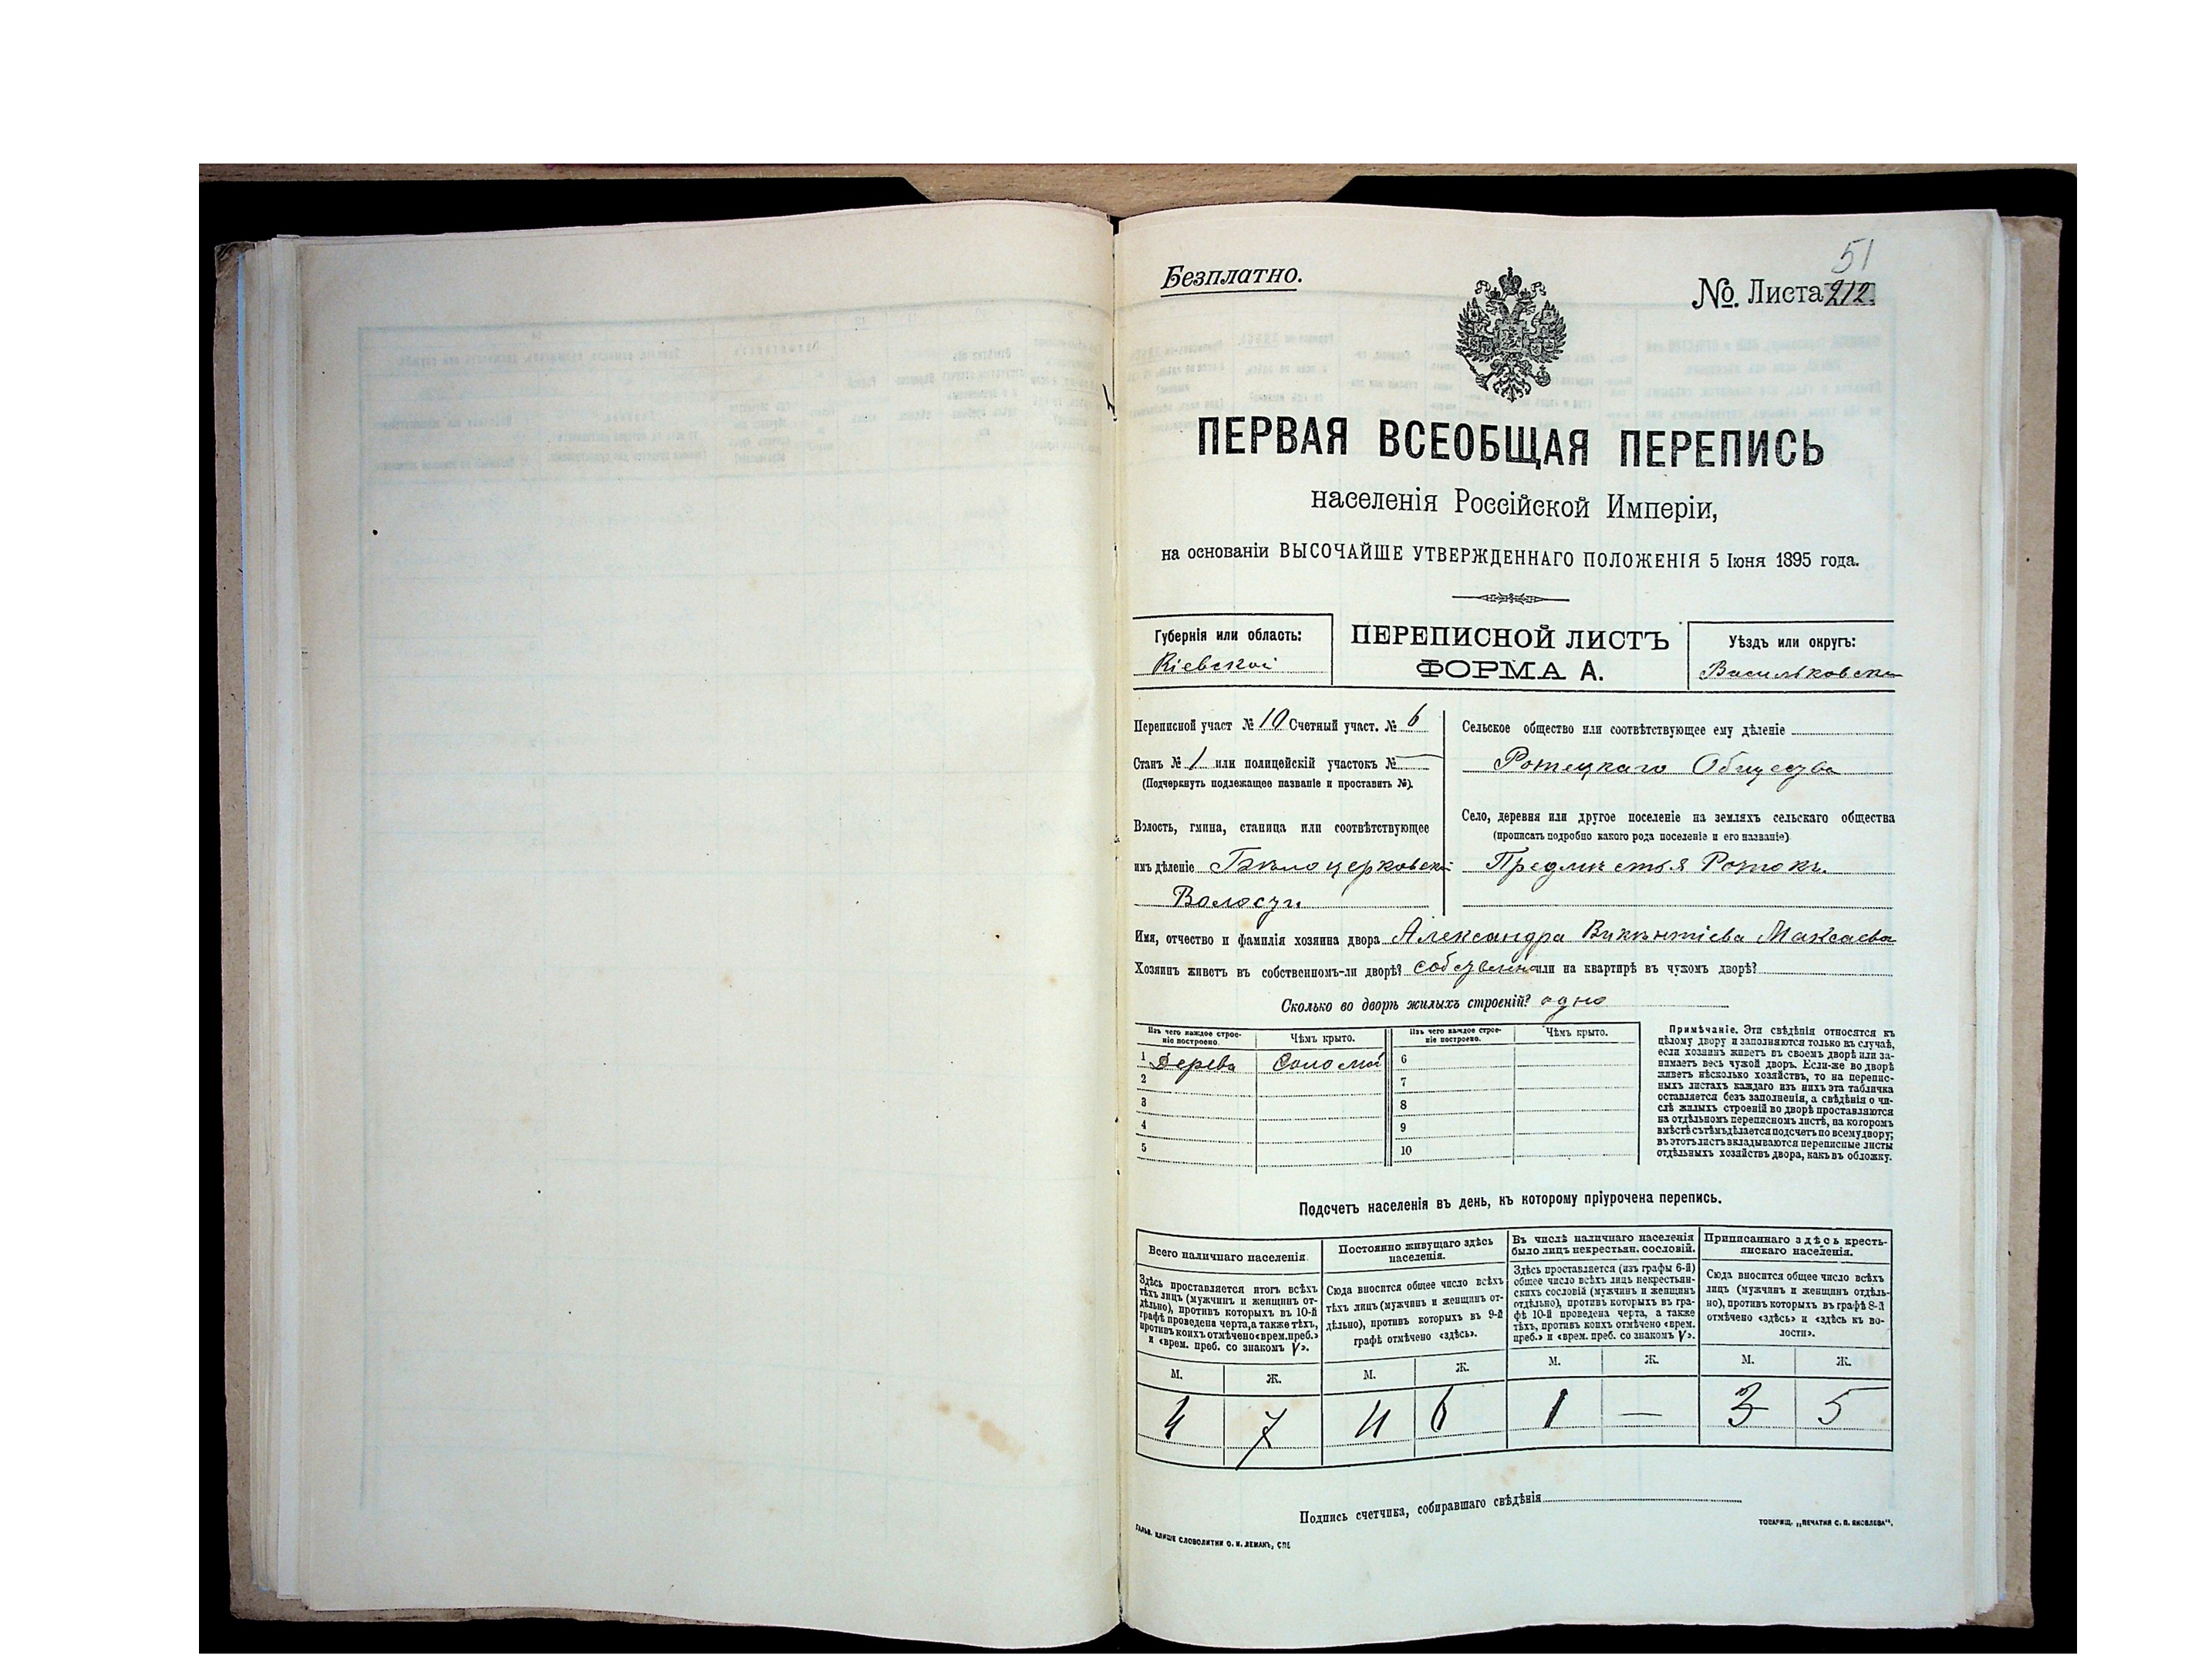 51
Безплатно.
№. Листа 212.
ПЕРВАЯ ВСЕОБЩАЯ ПЕРЕПИСЬ
населенія Россійской Имперіи,
на основаніи ВЫСОЧАЙШЕ УТВЕРЖДЕННАГО ПОЛОЖЕНІЯ 5 Іюня 1895 года.
Губернія или область:
Кіевской
ПЕРЕПИСНОЙ ЛИСТЪ
ФОРМА А.
Уѣздъ или округъ:
Васильковска
Переписной участ № 10 Счетный участ. № 6
Станъ № 1 или полицейскій участокъ №
(Подчеркнуть подлежащее названіе и проставить №).
Волость, гмина, станица или соотвѣтствующее
имъ дѣленіе Бѣлоцерковска
Волости
Сельское общество или соотвѣтствующее ему дѣленіе
Ротецкаго Общества
Село, деревня или другое поселеніе на земляхъ сельскаго общества
(прописать подробно какого рода поселеніе и его названіе)
Предмѣстья Ротокъ.
Имя, отчество и фамилія хозяина двора Александра Викентіева Максаева
Хозяинъ живетъ въ собственномъ-ли дворѣ? собственно или на квартирѣ въ чужомъ дворѣ?
Сколько во дворѣ жилыхъ строеній? одно
Изъ чего каждое строе-
ніе построено.
Чѣмъ крыто.
Изъ чего каждое строе-
ніе построено.
Чѣмъ крыто.
1 Дерева Соломой 6
2 7
3 8
4 9
5 10
Примѣчаніе. Эти свѣдѣнія относятся къ
цѣлому двору и заполняются только въ случаѣ,
если хозяинъ живетъ въ своемъ дворѣ или за-
нимаетъ весь чужой дворъ. Если-же во дворѣ
живетъ нѣсколько хозяйствъ, то на перепис-
ныхъ листахъ каждаго изъ нихъ эта табличка
оставляется безъ заполненія, а свѣдѣнія о чи-
слѣ жилыхъ строеній во дворѣ проставляются
на отдѣльномъ переписномъ листѣ, на которомъ
вмѣстѣ съ тѣмъ дѣлается подсчетъ по всему двору;
въ этотъ листъ вкладываются переписные листы
отдѣльныхъ хозяйствъ двора, какъ въ обложку.
Подсчетъ населенія въ день, къ которому пріурочена перепись.
Всего наличнаго населенія.
Здѣсь проставляется итогъ всѣхъ
тѣхъ лицъ (мужчинъ и женщинъ от-
дѣльно), противъ которыхъ въ 10-й
графѣ проведена черта, а также тѣхъ,
противъ коихъ отмѣчено «врем. преб.»
и «врем. преб. со знакомъ V».
Постоянно живущаго здѣсь
населенія.
Сюда вносится общее число всѣхъ
тѣхъ лицъ (мужчинъ и женщинъ от-
дѣльно), противъ которыхъ въ 9-й
графѣ отмѣчено «здѣсь».
Въ числѣ наличнаго населенія
было лицъ некрестьян. сословій.
Здѣсь проставляется (изъ графы 6-й)
общее число всѣхъ лицъ некрестьян-
скихъ сословій (мужчинъ и женщинъ
отдѣльно), противъ которыхъ въ гра-
фѣ 10-й проведена черта, а также
тѣхъ, противъ коихъ отмѣчено «врем.
преб.» и «врем. преб. со знакомъ V».
Приписаннаго здѣсь кресть-
янскаго населенія.
Сюда вносится общее число всѣхъ
лицъ (мужчинъ и женщинъ отдѣль-
но), противъ которыхъ въ графѣ 8-й
отмѣчено «здѣсь» и «здѣсь къ во-
лости».
М. Ж. М. Ж. М. Ж. М. Ж.
4 7 4 6 1 — 3 5
Подпись счетчика, собиравшаго свѣдѣнія
ГАЛЬВ. КЛИШЕ СЛОВОЛИТНИ О. И. ЛЕМАНЪ, СПБ
ТОВАРИЩ. „ПЕЧАТНЯ С. П. ЯКОВЛЕВА".